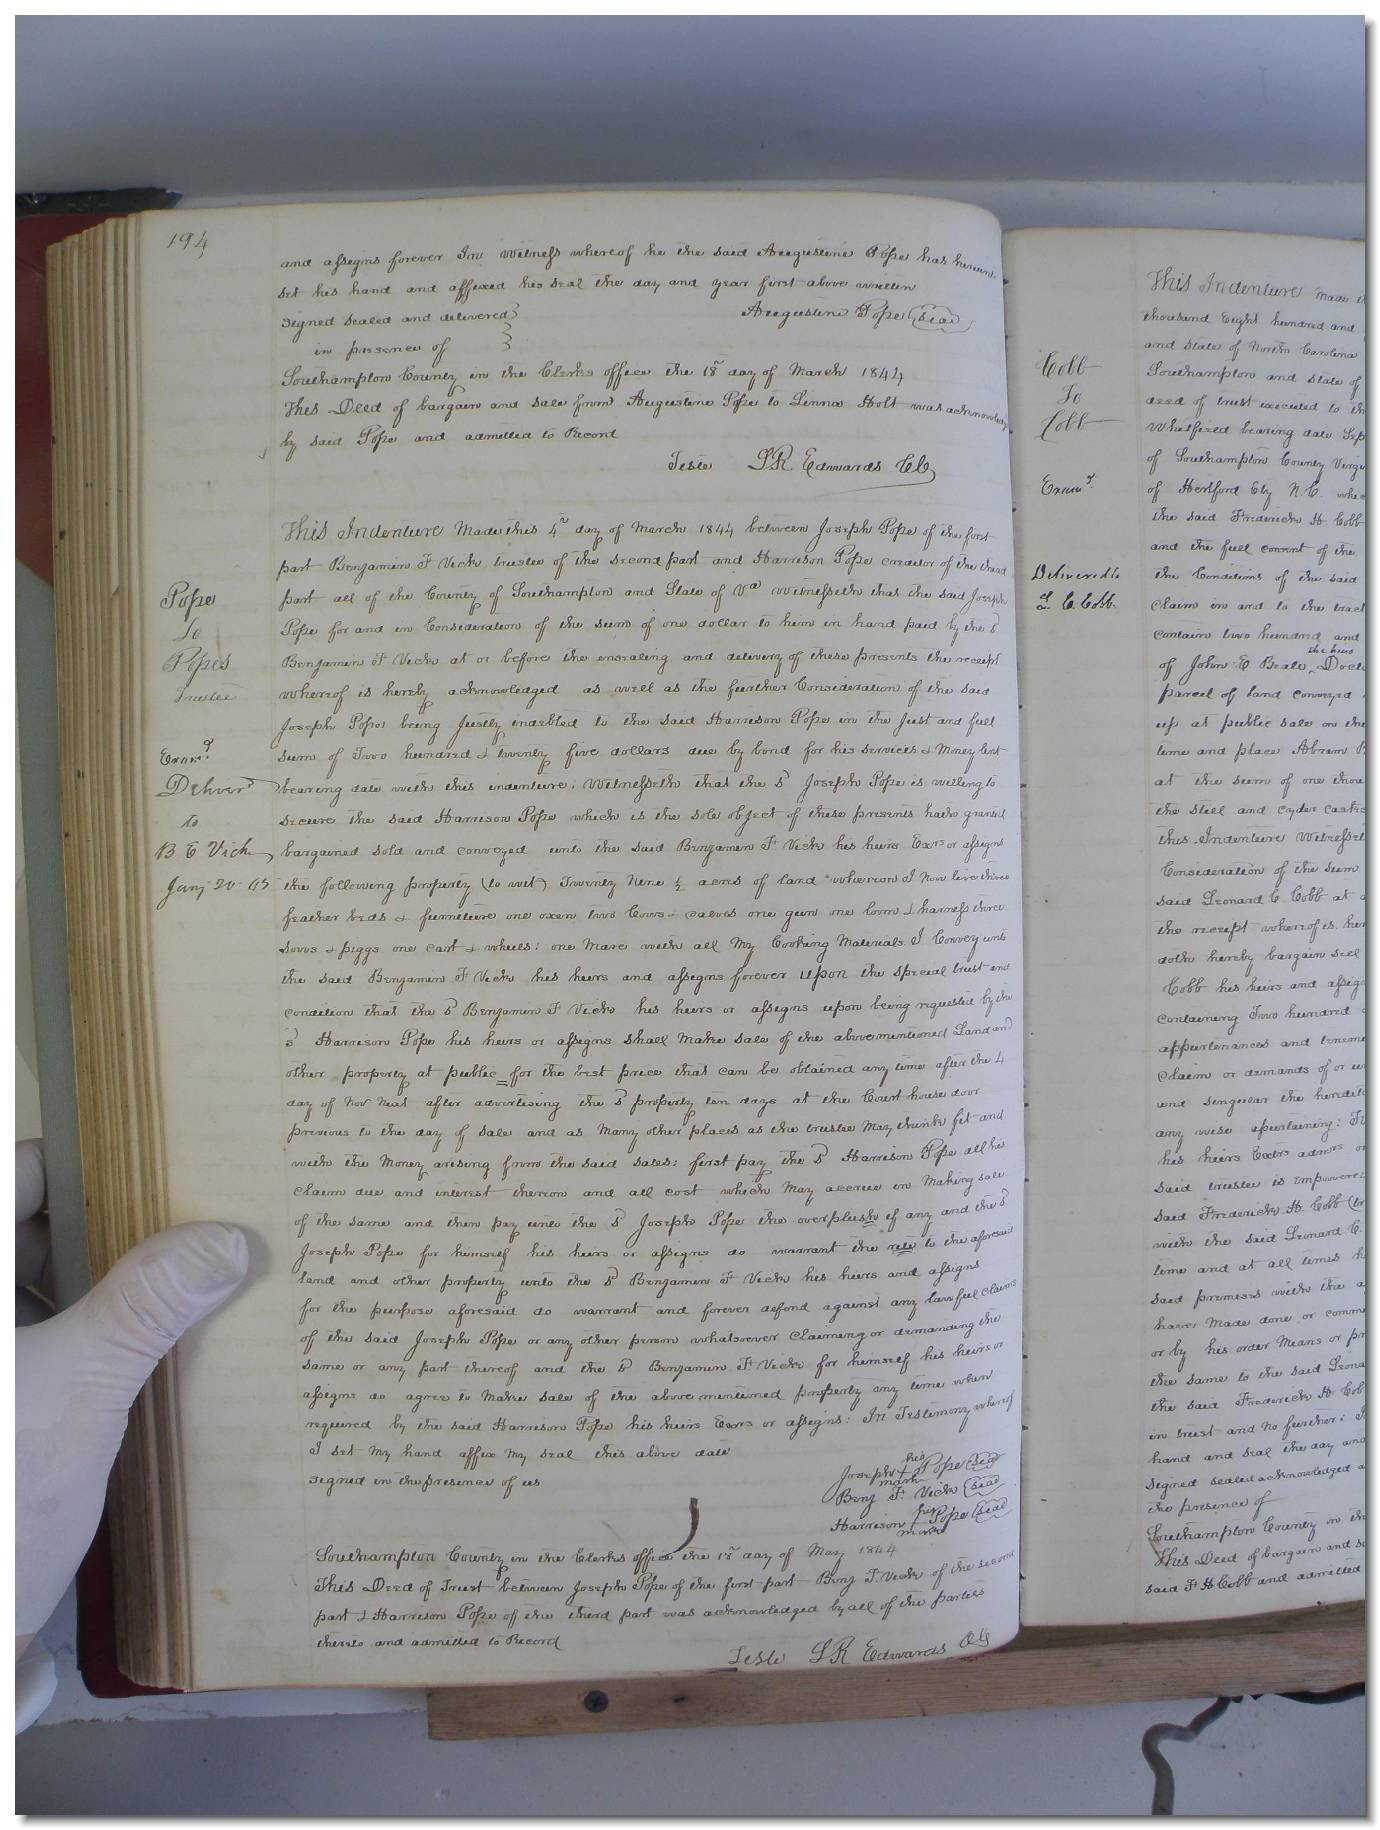 194
and assigns forever In Witness whereof he the said Augustine Pope has hereunto
set his hand and affixed his seal the day and year first above written
signed sealed and delivered Augustine Pope seal
in presence of
Southampton County in the Clerks office the 18th day of March 1844
This Deed of bargain and sale from Augustine Pope to Linna Holt was acknowledged
by said Pope and admitted to Record
Teste LR Edwards CC
This Indenture Made this 4th day of March 1844 between Joseph Pope of the first
part Benjamin F Vick trustee of the second part and Harrison Pope creditor of the third
Pope
To
Popes
Trustee
part all of the County of Southampton and State of Va Witnesseth that the said Joseph
Pope for and in Consideration of the sum of one dollar to him in hand paid by the sd
Benjamin F Vick at or before the ensealing and delivery of these presents the receipt
whereof is hereby acknowledged as well as the further Consideration of the said
Joseph Pope being Justly indebted to the said Harrison Pope in the Just and full
sum of Two hundred & twenty five dollars due by bond for his services & Money lent
Examd
Deliverd
to
B E Vick
Jany 20 45
bearing date with this indenture. Witnesseth that the sd Joseph Pope is willing to
secure the said Harrison Pope which is the sole object of these presents hath grantd
bargained sold and conveyed unto the said Benjamin F Vick his heirs Exrs or assigns
the following property (to wit) Twenty Nine ½ acres of land whereon I Now live three
feather beds & furniture one oxen two Cows & calves one gun one loom & harness three
sows & piggs one cart & wheels: one Mare with all My Cooking Materials I Convey unto
the said Benjamin F Vick his heirs and assigns forever upon the special trust and
condition that the sd Benjamin F Vick his heirs or assigns upon being requested by the
sd Harrison Pope his heirs or assigns shall Make sale of the abovementioned Land and
other property at public = for the best price that can be obtained any time after the 4
day of Nov Next after advertising the sd property ten days at the Court house door
previous to the day of sale and as Many other places as the trustee May think fit and
with the Money arising from the said sales: first pay the sd Harrison Pope all his
claim due and interest thereon and all cost which May accrue in Making sale
of the same and then pay unto the sd Joseph Pope the overplush if any and the sd
Joseph Pope for himself his heirs or assigns do warrant the rite to the aforesaid
land and other property unto the sd Benjamin F Vick his heirs and assigns
for the purpose aforesaid do warrant and forever defend against any lawful claims
of the said Joseph Pope or any other person whatsoever claiming or demanding the
same or any part thereoff and the sd Benjamin F Vick for himself his heirs or
assigns do agree to Make sale of the above mentioned property any time when
required by the said Harrison Pope his heirs Exors or assigns: In Testimony whereof
I set My hand affix My seal this above date
signed in the presence of us
his
Joseph + Pope seal
mark
Benj F. Vick seal
his
Harrison + Pope seal
mark
Southampton County in the Clerks office the 18th day of May 1844
This Deed of Trust between Joseph Pope of the first part Benj F. Vick of the second
part & Harrison Pope off the third part was acknowledged by all of the parties
thereto and admitted to Record
Teste LR Edwards CC
Cobb
To
Cobb
Examd
Delivered to
L C Cobb
This Indenture Made
thousand Eight hundred and
and State of North Carolina
Southampton and State of
deed of trust executed to
Whitfield bearing date Sep
of Southampton County Virgi
of Hertford Cty N.C.
the said Frederick H Cobb
and the full consent of the
the Conditions of the said
claim in and to the tract
contain two hundred and
of John E Beale
parcel of land conveyed
up at public sale on the
time and place Abram
at the sum of one thou
the still and cyder casks
this Indenture Witnesset
Consideration of the sum
said Leonard C. Cobb at
the receipt whereof is her
doth hereby bargain sell
Cobb his heirs and assign
containing Two hundred
appurtenances and teneme
Claim or demands of or
and singular the heredita
any wise apurtaining:
his heirs Exors admrs or
said trustee is impowered
said Frederick H. Cobb
with the said Leonard C.
time and at all times
said premises with the
have Made done or comm
or by his order Means or
the same to the said Leona
the said Frederick H Cob
in trust and No further:
hand and seal the day and
signed sealed acknowledged
the presence of
Southampton County in th
This Deed of bargain and sa
said F H Cobb and admitted